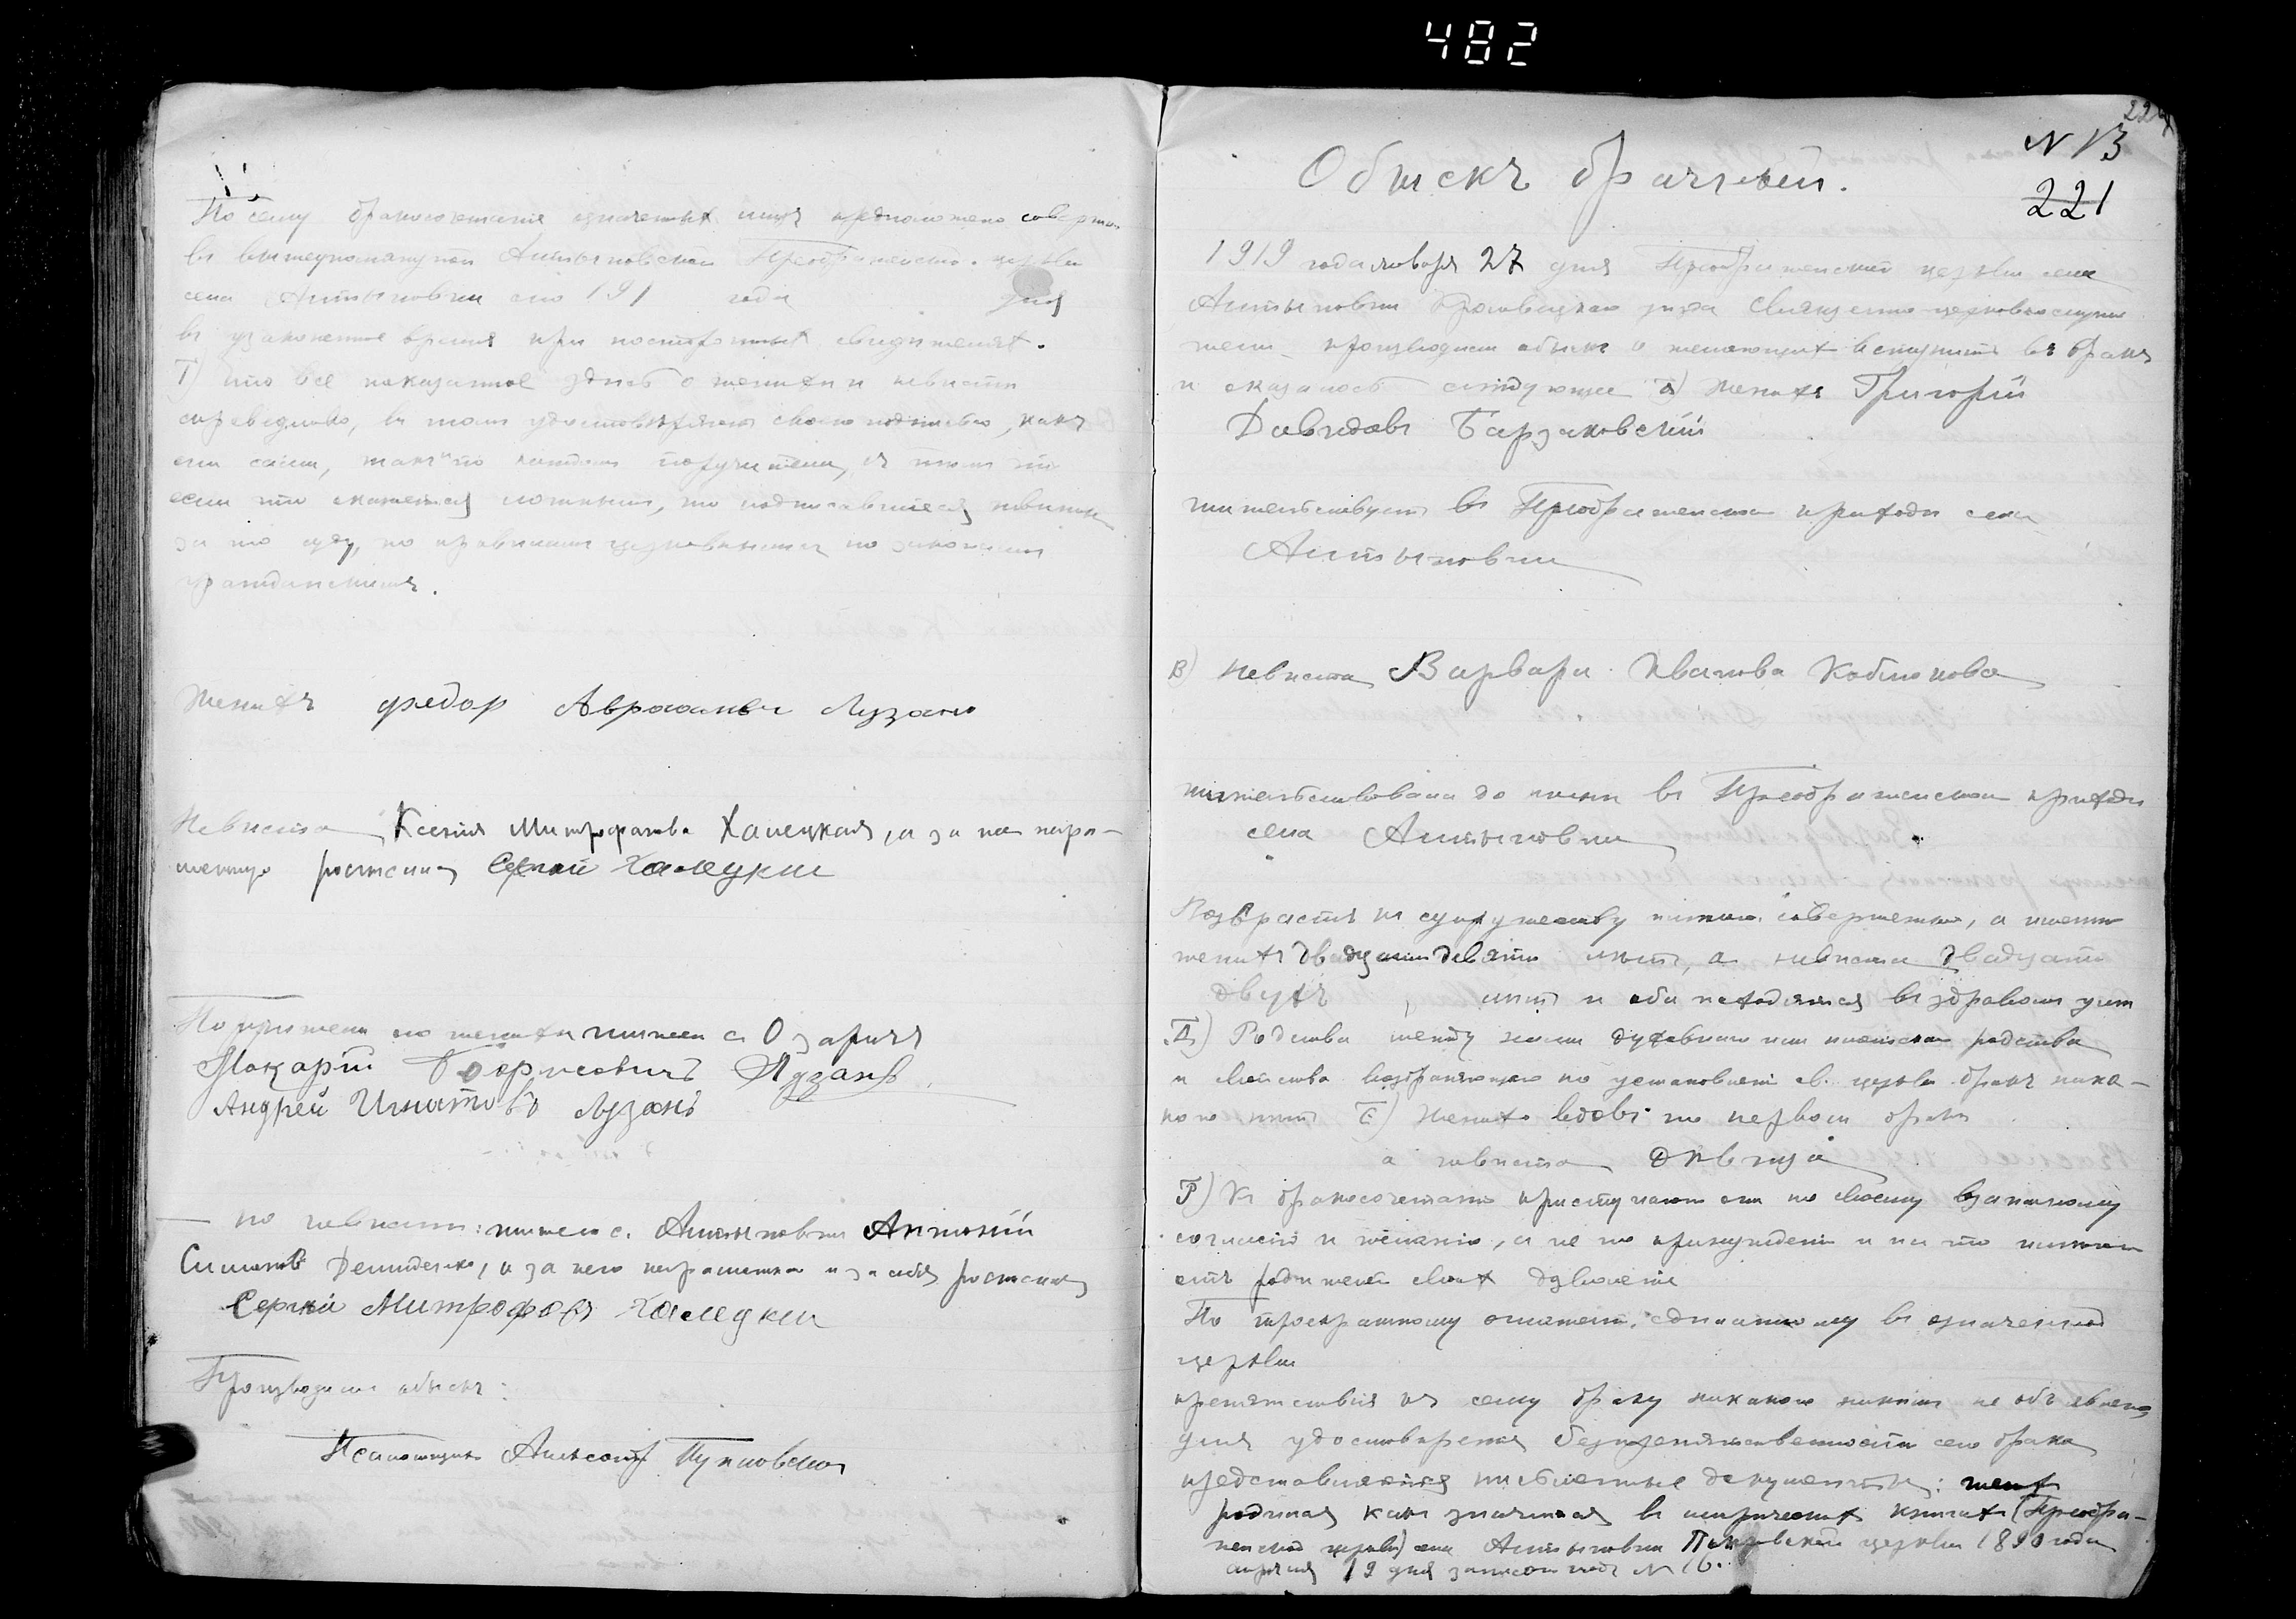 482
По сему бракосочетание означенных лицъ предположено соверши-
въ вышеупомянутой Алтыновской Преображенской церкви
села Алтыновки сего 191 года дня
въ узаконенное время при постороннихъ свидетеляхъ.
Г) Что все показанное здесь о женихе и невесте
справедливо, въ томъ удостоверяютъ своею подписью, какъ
они сами, такъ и по каждомъ поручители, съ темъ что
если что окажется ложнымъ, то подписавшиеся повинны
за то суду, по правиламъ церковнымъ и по законамъ
гражданскимъ.
Женихъ Федор Авраамовъ Лузанъ
Невеста Ксения Митрофанова Халецкая, а за нее негра-
мотную росписался Сергей Халецки
Поручители по женихе жители с. Озаричъ
Макарій Борисовичъ Лузанъ
Андрей Игнатовъ Лузанъ
по невесте: жители с. Алтыновки Антоній
Демиденко, а за него неграмотна и за себя росписался
Сергей Митрофовъ Халецки
Производили обыскъ:
Псаломщикъ Александръ
224
N 13
221
Обыскъ брачный.
1919 года января 27 дня Преображенской церкви села
Алтыновки Кролевецкаго уезда Священно-церковнослужи
тели производили обыскъ о желающихъ вступить въ бракъ
и оказалось следующее а) Женихъ Григорій
Давидовъ Барзаковскій
жительствуетъ въ Преображенскомъ приходе села
Алтыновки
В) Невеста Варвара Иванова Коблокова
жительствовала до ныне въ Преображенскомъ приходе
села Алтыновки
Возрастъ къ супружеству имеютъ совершенный, а именно
женихъ двадцати девяти летъ, а невеста двадцати
двухъ летъ и оба находятся въ здравомъ уме
Д) Родства между ними духовнаго или плотскаго родства
и свойства возбраняющаго по установленію св. церкви бракъ ника-
кого нетъ Е) Женихъ вдовъ по первомъ браке
а невеста девица
Г) Къ бракосочетанію приступаютъ они по своему взаимному
согласію и желанію, а не по принужденію и на то имеютъ
отъ родителей своихъ дозволеніе
По троекратному оглашенію, сделанному въ означенной
церкви
препятствія къ сему браку никакого никемъ не объявлено
Для удостоверенія безпрепятственности сего брака
представляются письменные документы: жених
родился какъ значится въ метрическихъ книгахъ (Преобра-
женской церкви) села Алтыновки Покровской церкви 1890 года
апреля 19 дня записанъ подъ N 16.